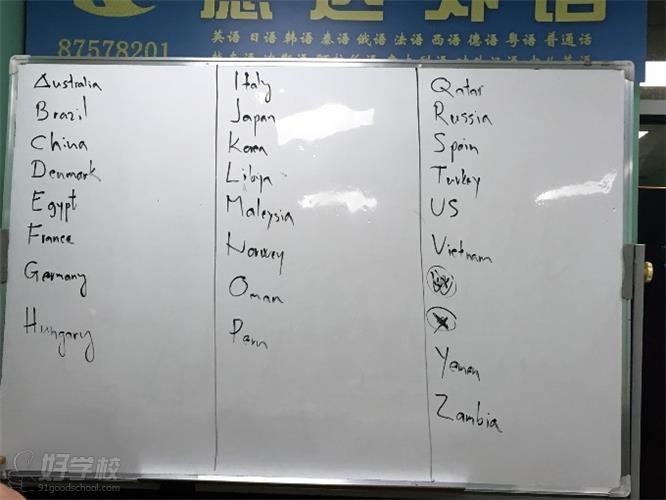 87578201
英语 日语 韩语 泰语 俄语 法语 西语 德语 粤语 普通话
Australia
Brazil
China
Denmark
Egypt
France
Germany
Hungary
Italy
Japan
Korea
Libya
Malaysia
Norway
Oman
Peru
Qatar
Russia
Spain
Turkey
US
Vietnam
Yemen
Zambia
好学校
91goodschool.com